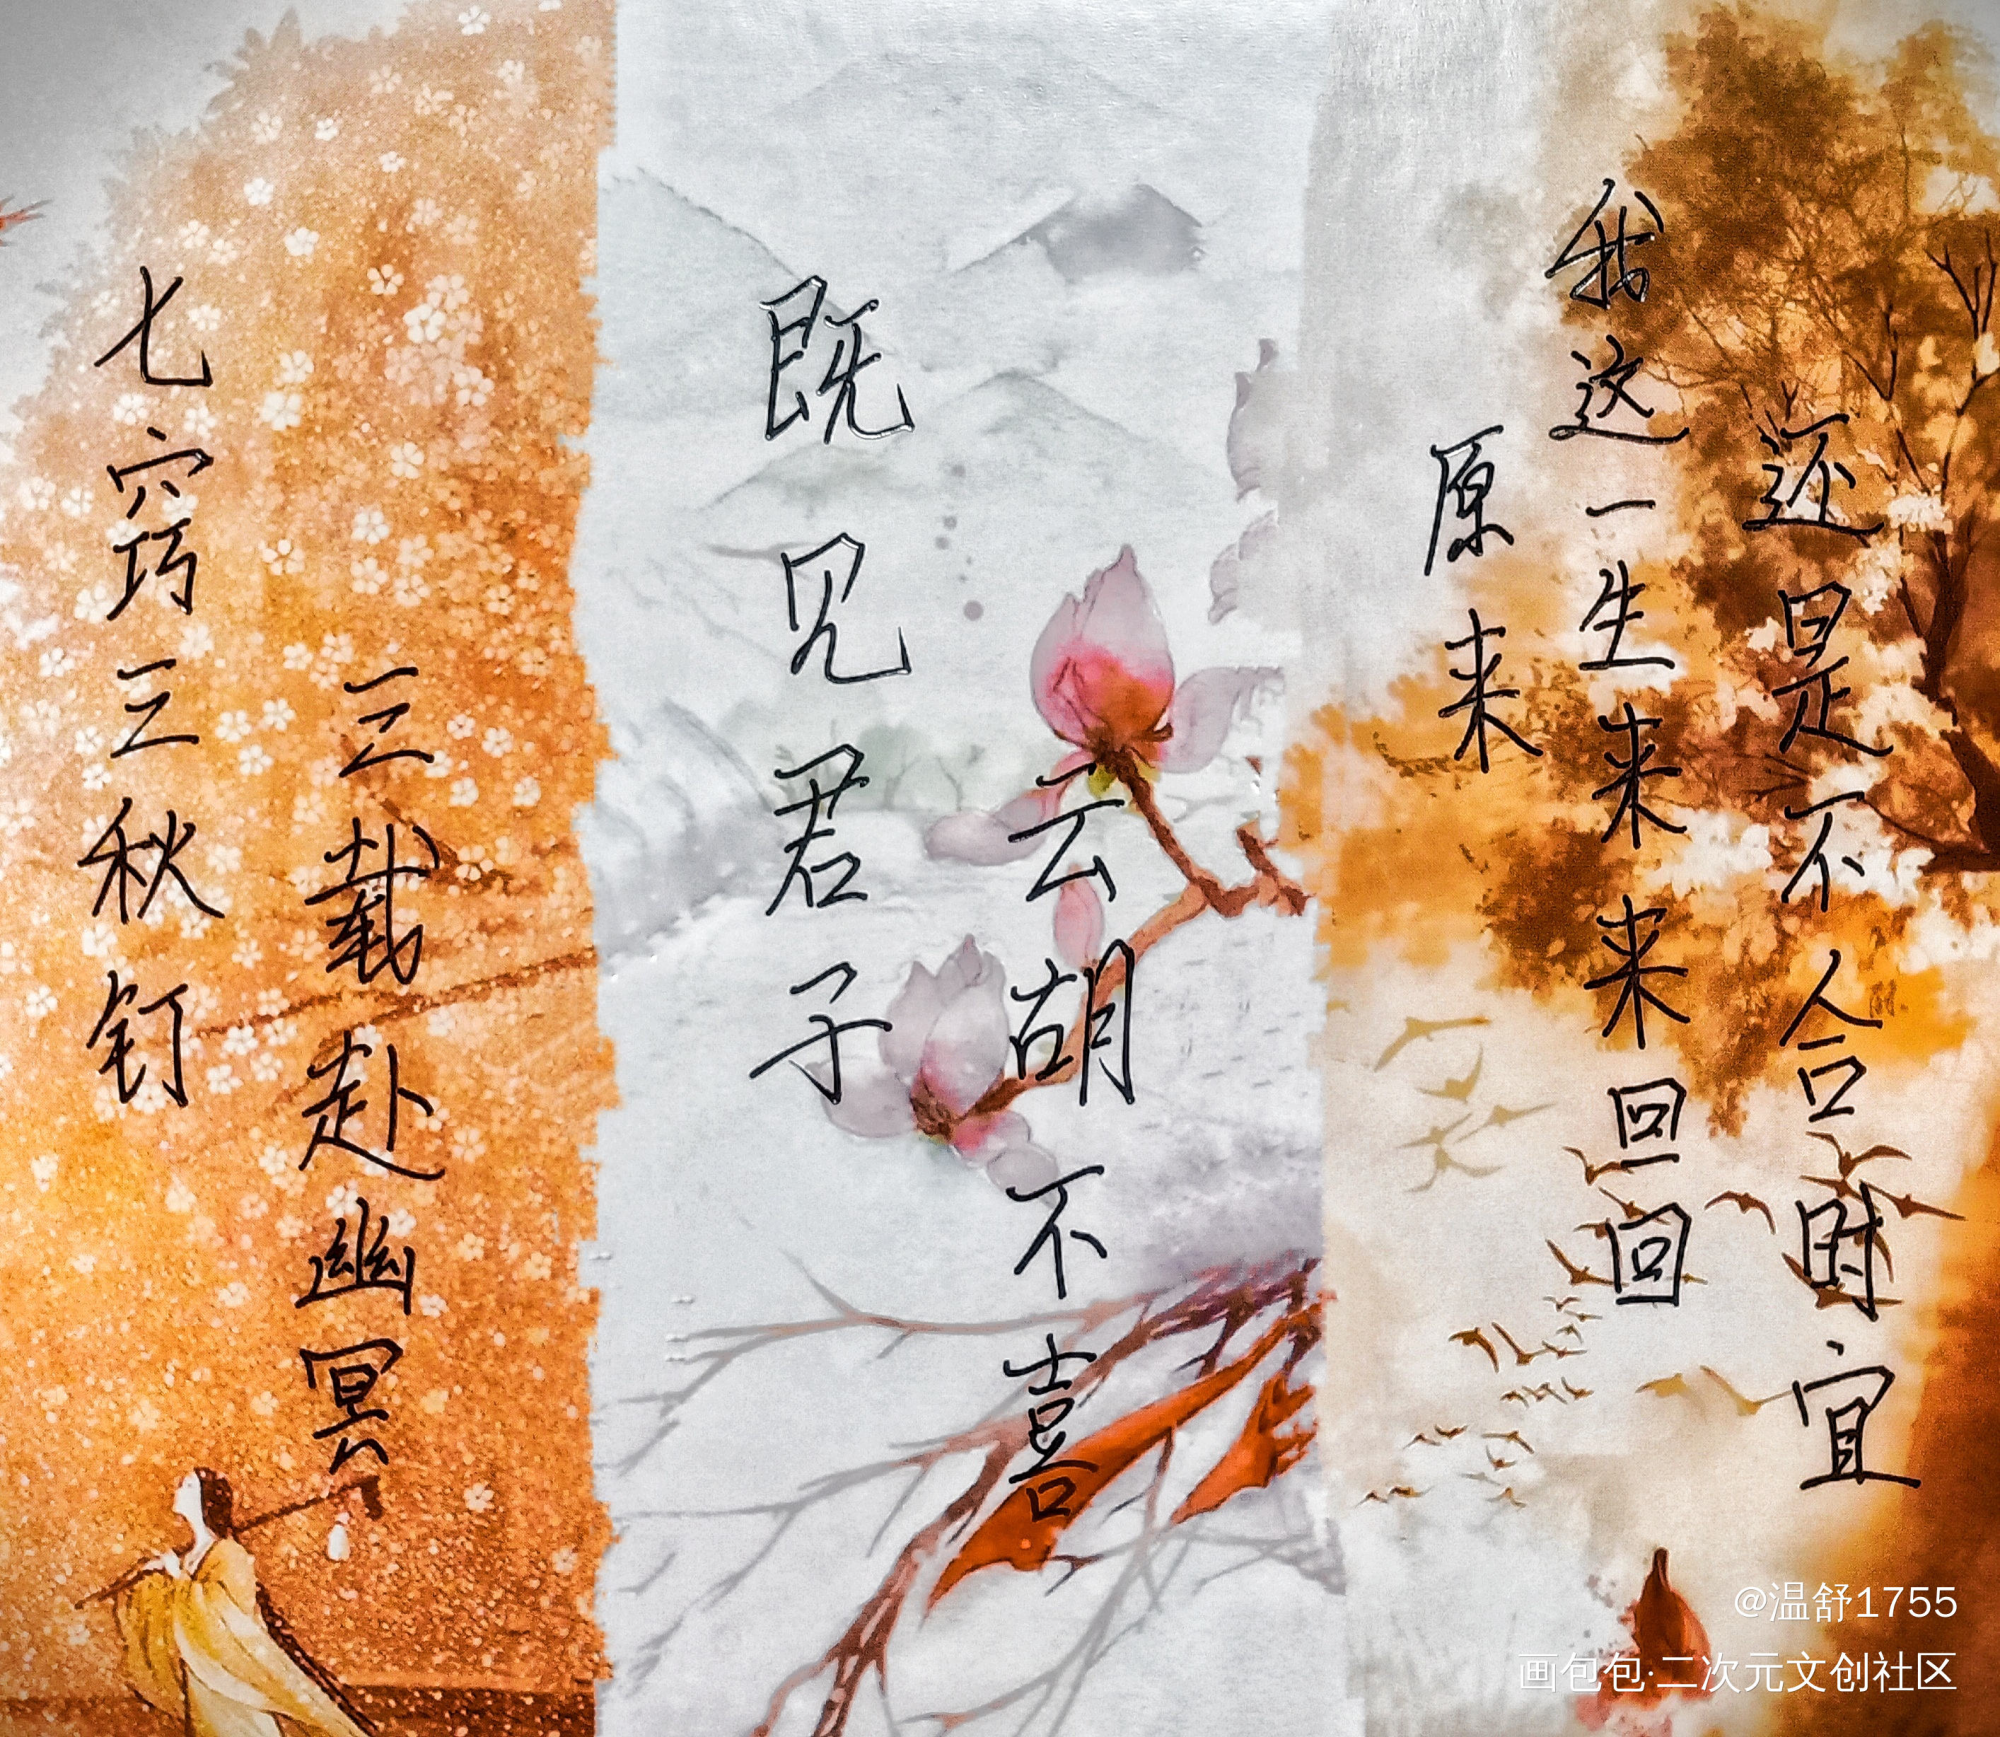 七窍三秋钉
三载赴幽冥
既见君子
云胡不喜
原来
我这一生来来回回
还是不合时宜
@温舒1755
画包包·二次元文创社区